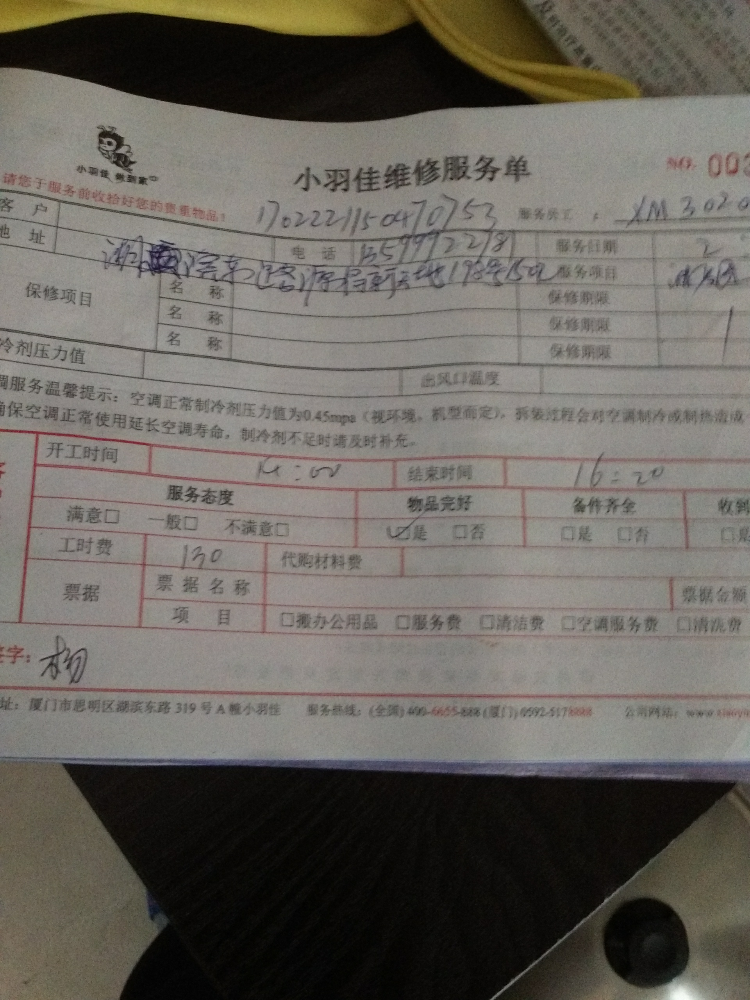 小羽佳维修服务单
NO. 003
小羽佳 俐到家
请您于服务前收拾好您的贵重物品!
1702221150470753
服务员工: XM3020
客 户
电 话
服务日期 2
地 址
服务项目
保修项目 名 称 保修期限
名 称 保修期限
名 称 保修期限
冷剂压力值 出风口温度
调服务温馨提示:空调正常制冷剂压力值为0.45mpa(视环境、机型而定),拆装过程会对空调制冷或制热造成
确保空调正常使用延长空调寿命,制冷剂不足时请及时补充。
开工时间 结束时间 16:20
服务态度 物品完好 备件齐全 收到
满意□ 一般□ 不满意□ ☑是 □否 □是 □否 □是
工时费 130 代购材料费
票据 票据名称 票据金额
项 目 □搬办公用品 □服务费 □清洁费 □空调服务费 □清洗费
签字: 杨
址:厦门市思明区湖滨东路 319 号 A 幢小羽佳 服务热线:(全国) 400-6655-888 (厦门) 0592-5178888 公司网站:www.xiaoyu